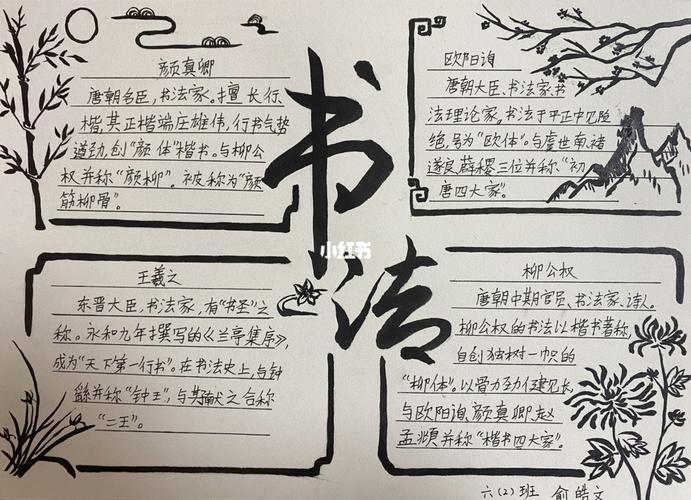 颜真卿
唐朝名臣，书法家。擅长行
楷，其正楷端庄雄伟，行书气势
遒劲，创“颜体”楷书。与柳公
权并称“颜柳”。被称为“颜
筋柳骨”。
书法
小红书
欧阳询
唐朝大臣、书法家、书
法理论家，书法于平正中见险
绝，号为“欧体”。与虞世南、褚
遂良、薛稷三位并称“初
唐四大家”。
王羲之
东晋大臣，书法家，有“书圣”之
称。永和九年撰写的《兰亭集序》，
成为“天下第一行书”。在书法史上，与钟
繇并称“钟王”，与其献之合称
“二王”。
柳公权
唐朝中期官员、书法家、诗人。
柳公权的书法以楷书著称，
自创独树一帜的
“柳体”，以骨力劲健见长，
与欧阳询、颜真卿、赵
孟頫并称“楷书四大家”。
六(2)班 俞皓文